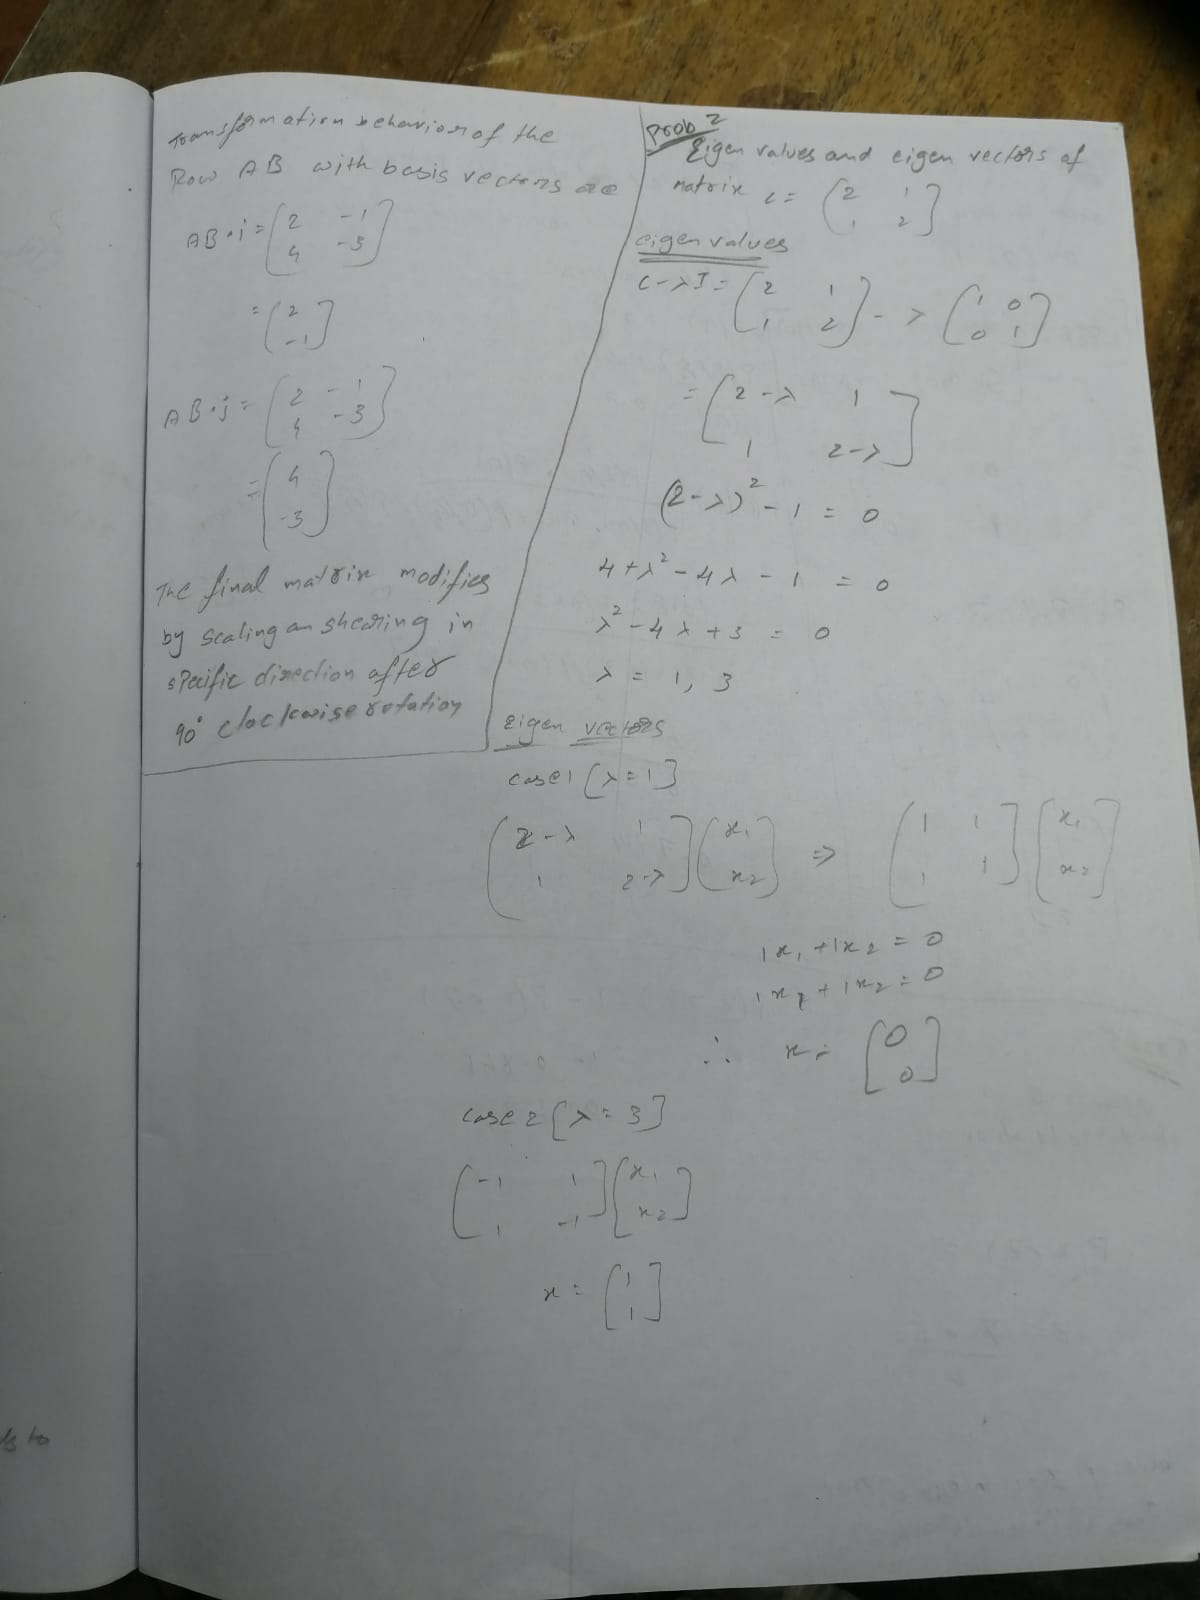 Transformation behavior of the
Row AB with basis vectors are
AB·i = [2 -1
4 -3]
= [2
-1]
AB·j = [2 -1
4 -3]
= [4
-3]
The final matrix modifies
by scaling an shearing in
specific direction after
90° clockwise rotation
prob 2
Eigen values and eigen vectors of
Matrix c = [2 1
1 2]
eigen values
C-λI = [2 1
1 2] - λ [1 0
0 1]
= [2-λ 1
1 2-λ]
(2-λ)² - 1 = 0
4+λ² - 4λ - 1 = 0
λ² - 4λ + 3 = 0
λ = 1, 3
Eigen vectors
case 1 [λ=1]
[2-λ 1
1 2-λ] [x₁
x₂] ⇒ [1 1
1 1] [x₁
x₂]
1x₁ + 1x₂ = 0
1x₁ + 1x₂ = 0
∴ x = [0
0]
case 2 [λ=3]
[-1 1
1 -1] [x₁
x₂]
x = [1
1]
to